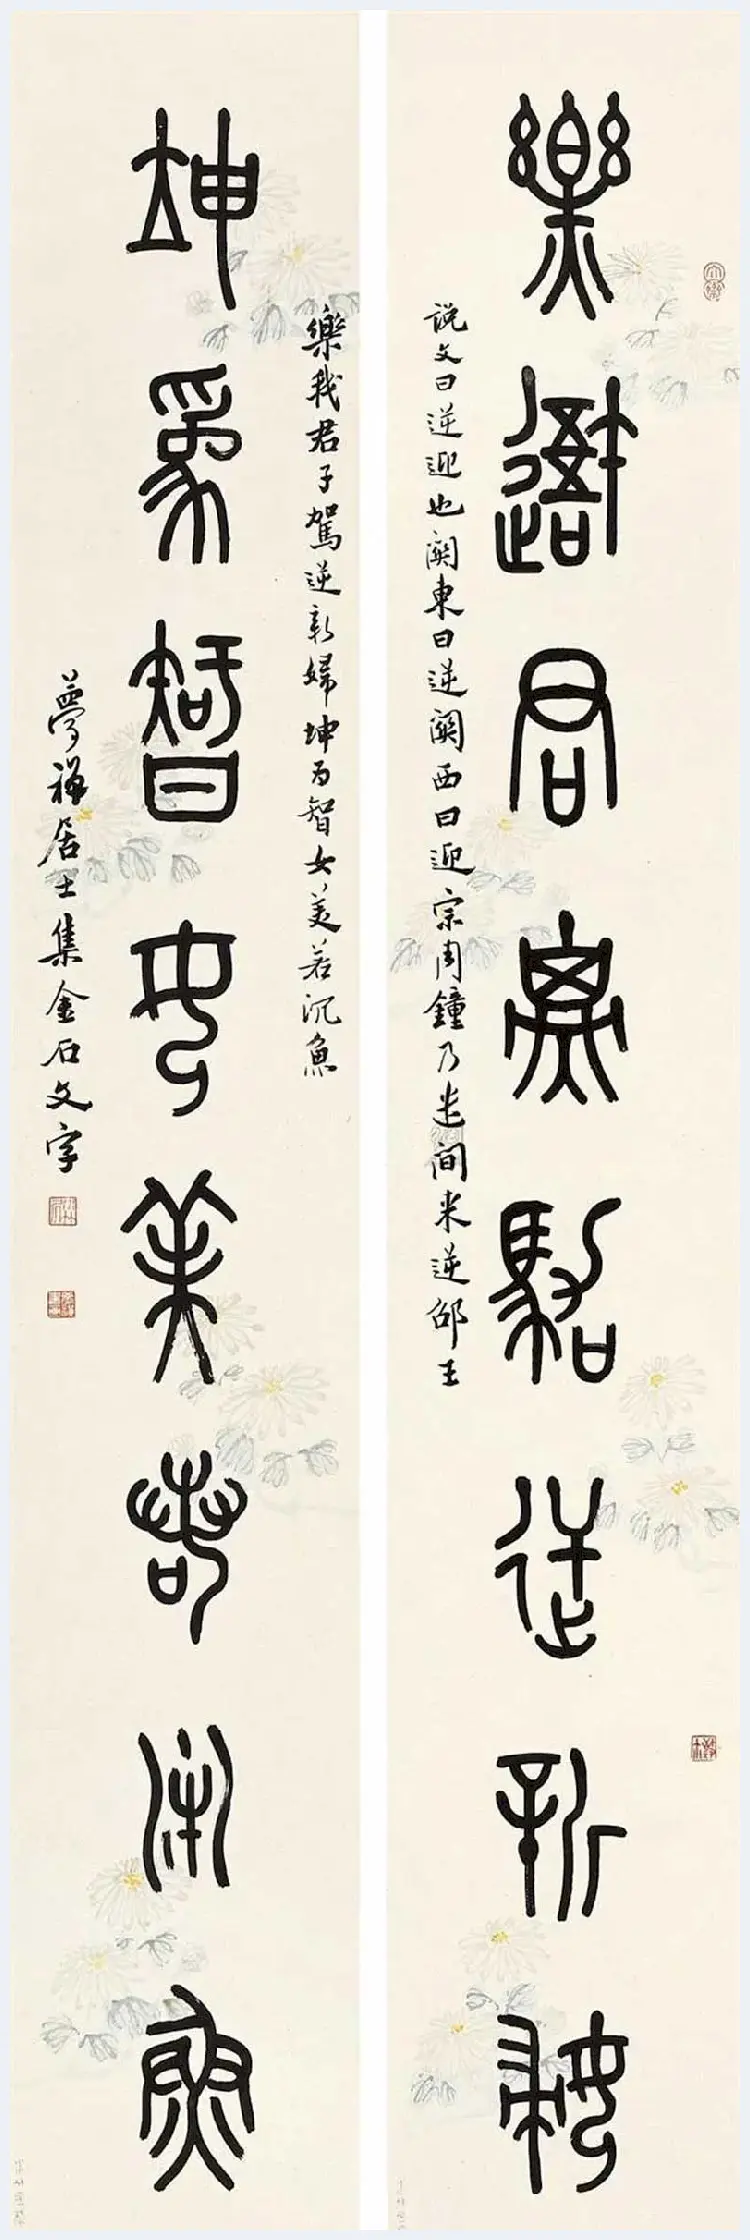 樂我君子駕逆新婦
说文曰逆迎也関東曰逆関西曰迎宗周鐘乃遣间来逆邵王
樂我君子駕逆新婦坤为智女美若沉魚
坤為智女美若沉魚
夢禅居士集金石文字